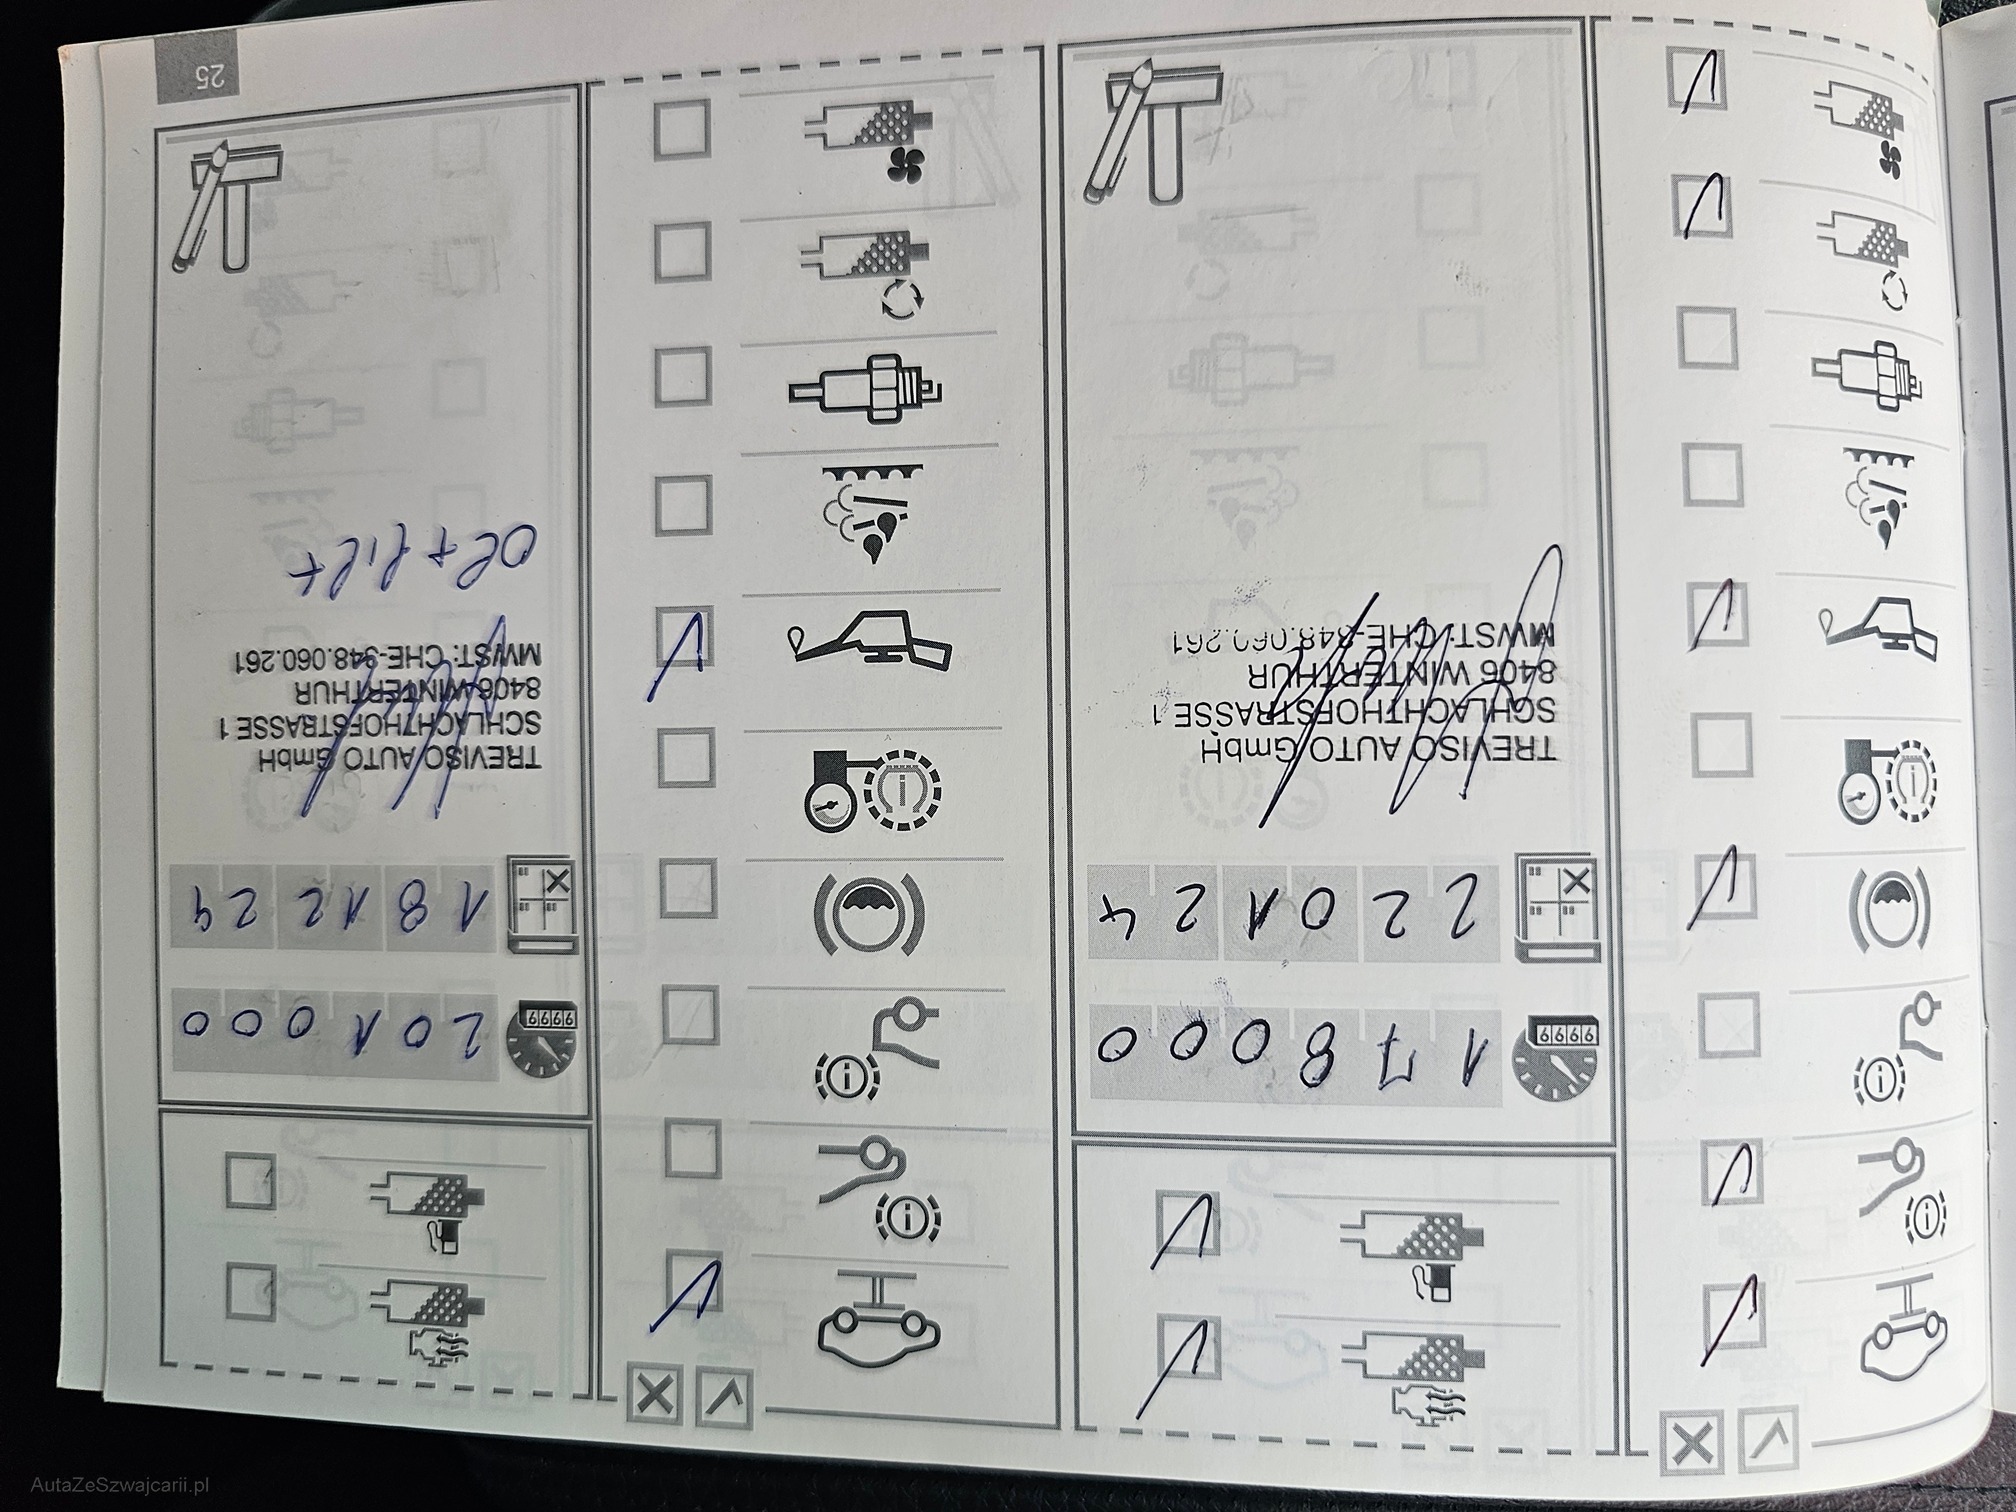 9999 178000
220124
TREVISO AUTO GmbH
SCHLACHTHOFSTRASSE 1
8406 WINTERTHUR
MWST: CHE-348.060.261
9999 201000
181224
TREVISO AUTO GmbH
SCHLACHTHOFSTRASSE 1
8406 WINTERTHUR
MWST: CHE-348.060.261
Ol + filt
25
AutaZeSzwajcarii.pl